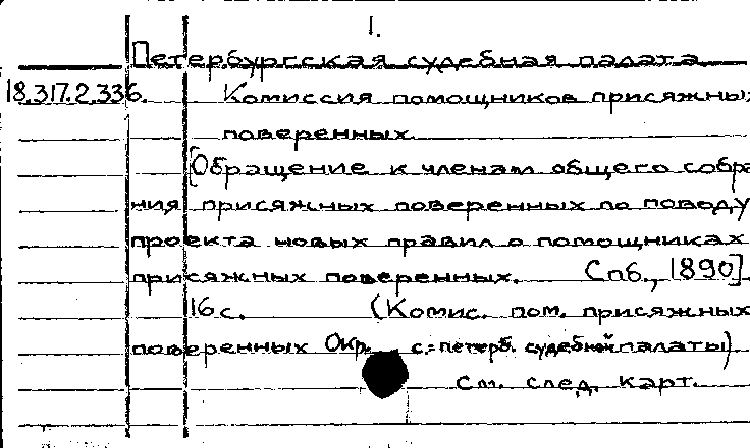 1.
Петербургская судебная палата
18.317.2.336. Комиссия помощников присяжны
поверенных.
[Обращение к членам общего собра
ния присяжных поверенных по поводу
проекта новых правил о помощниках
присяжных поверенных. Спб., 1890]
16 с. (Комис. пом. присяжных
поверенных Окр. с.=петерб. судебной палаты)
См. след. карт.